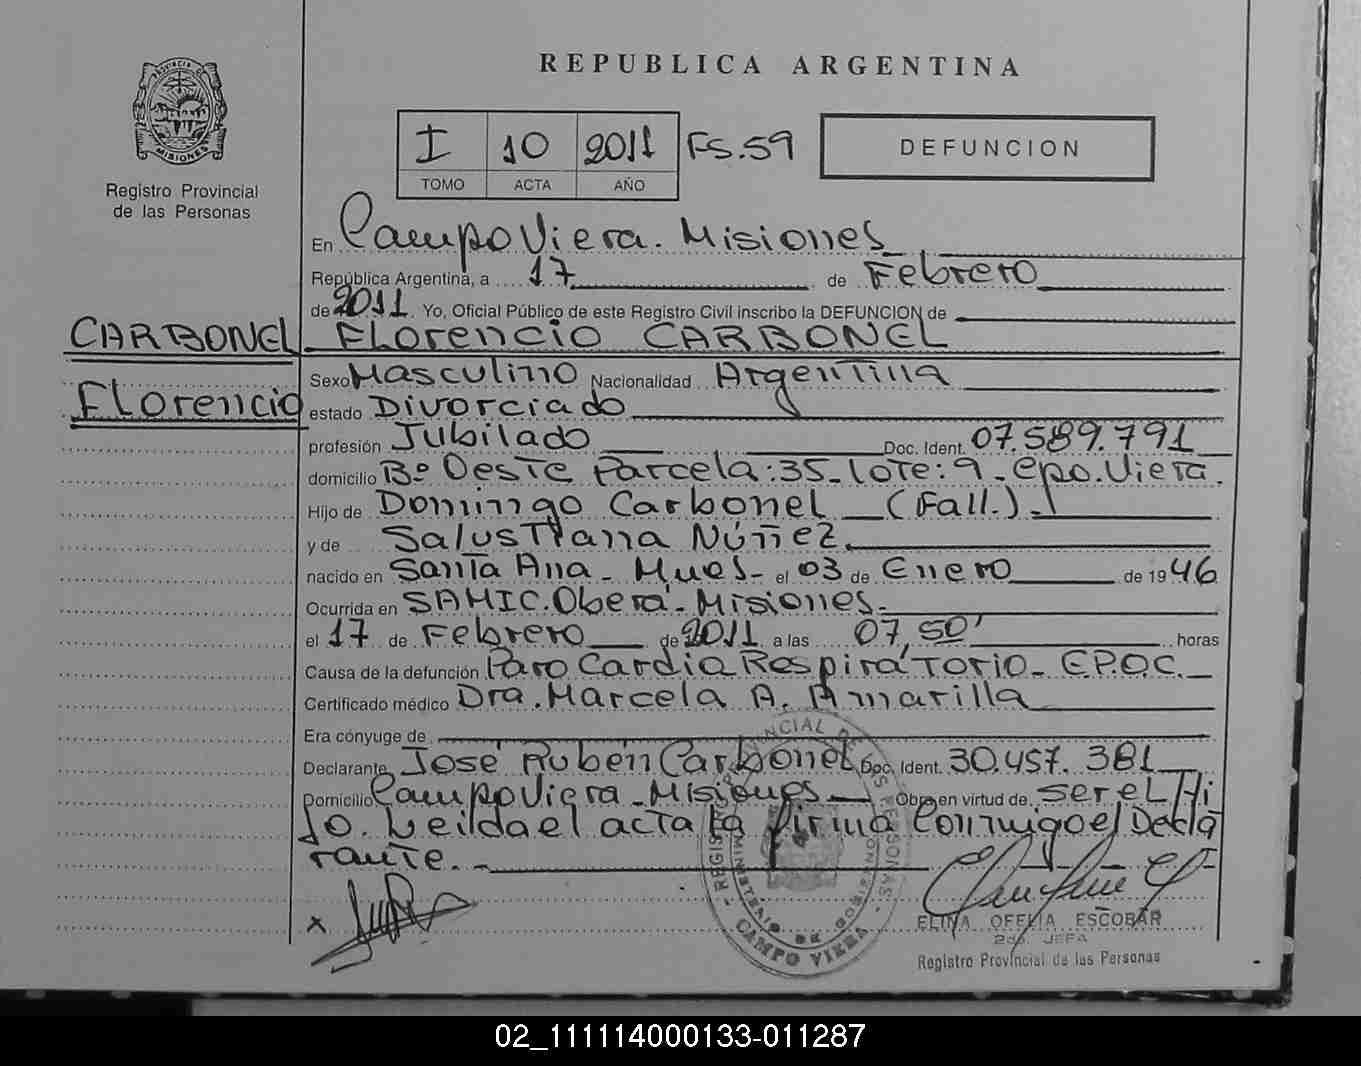 REPUBLICA ARGENTINA
PROVINCIA DE MISIONES
Registro Provincial
de las Personas
I 10 2011 FS.59
TOMO ACTA AÑO
DEFUNCION
En Campo Viera. Misiones
República Argentina, a 17 de Febrero
de 2011. Yo, Oficial Público de este Registro Civil inscribo la DEFUNCION de
CARBONEL Florencio CARBONEL
Florencio
Sexo Masculino Nacionalidad Argentina
estado Divorciado
profesión Jubilado Doc. Ident. 07.589.791
domicilio Bº Oeste Parcela:35-Lote:9-Cpo.Viera.
Hijo de Domingo Carbonel (Fall.)
y de Salustiana Núñez
nacido en Santa Ana - Mnes- el 03 de Enero de 1946
Ocurrida en SAMIC.Oberá-Misiones-
el 17 de Febrero de 2011 a las 07,50' horas
Causa de la defunción Paro Cardio Respiratorio- E.P.O.C.
Certificado médico Dra. Marcela A. Amarilla
Era cónyuge de
Declarante José Rubén Carbonel Doc. Ident. 30.457.381
Domicilio Campo Viera-Misiones Obra en virtud de ser el Hi
jo. Leída el acta la firma Conmigo el Decla
rante.
REGISTRO PROVINCIAL DE LAS PERSONAS
MINISTERIO DE GOBIERNO
CAMPO VIERA
x
ELINA OFELIA ESCOBAR
2da. JEFA
Registro Provincial de las Personas
02_111114000133-011287